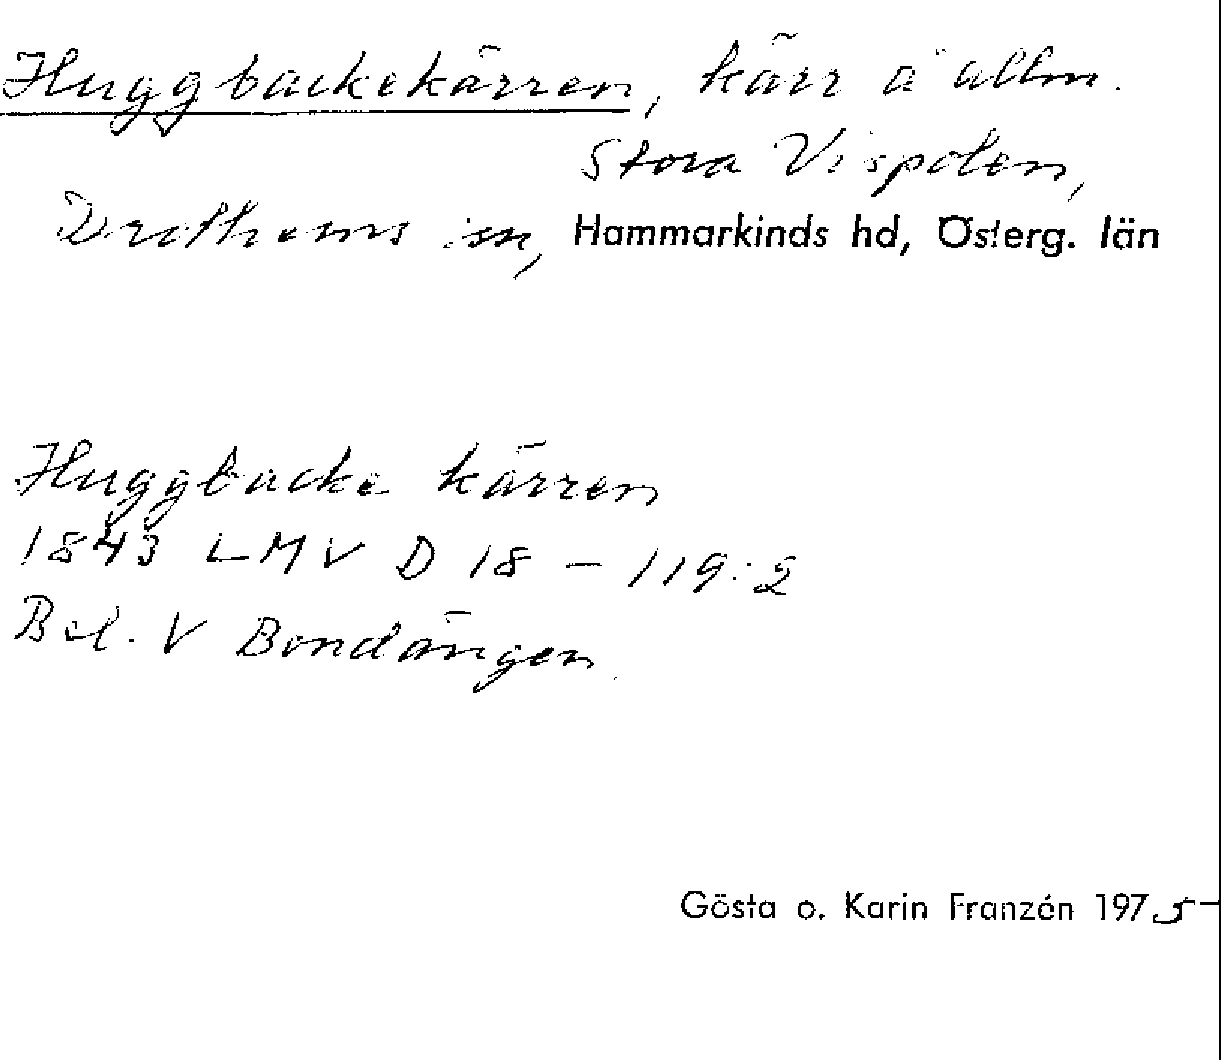 Huggbackekärren, kärr å allm.
Stora Vispolen,
Drothems sn, Hammarkinds hd, Österg. län
Huggbacke kärren
1843 LMV D 18 - 119:2
Bel. V Bondängen
Gösta o. Karin Franzén 1975